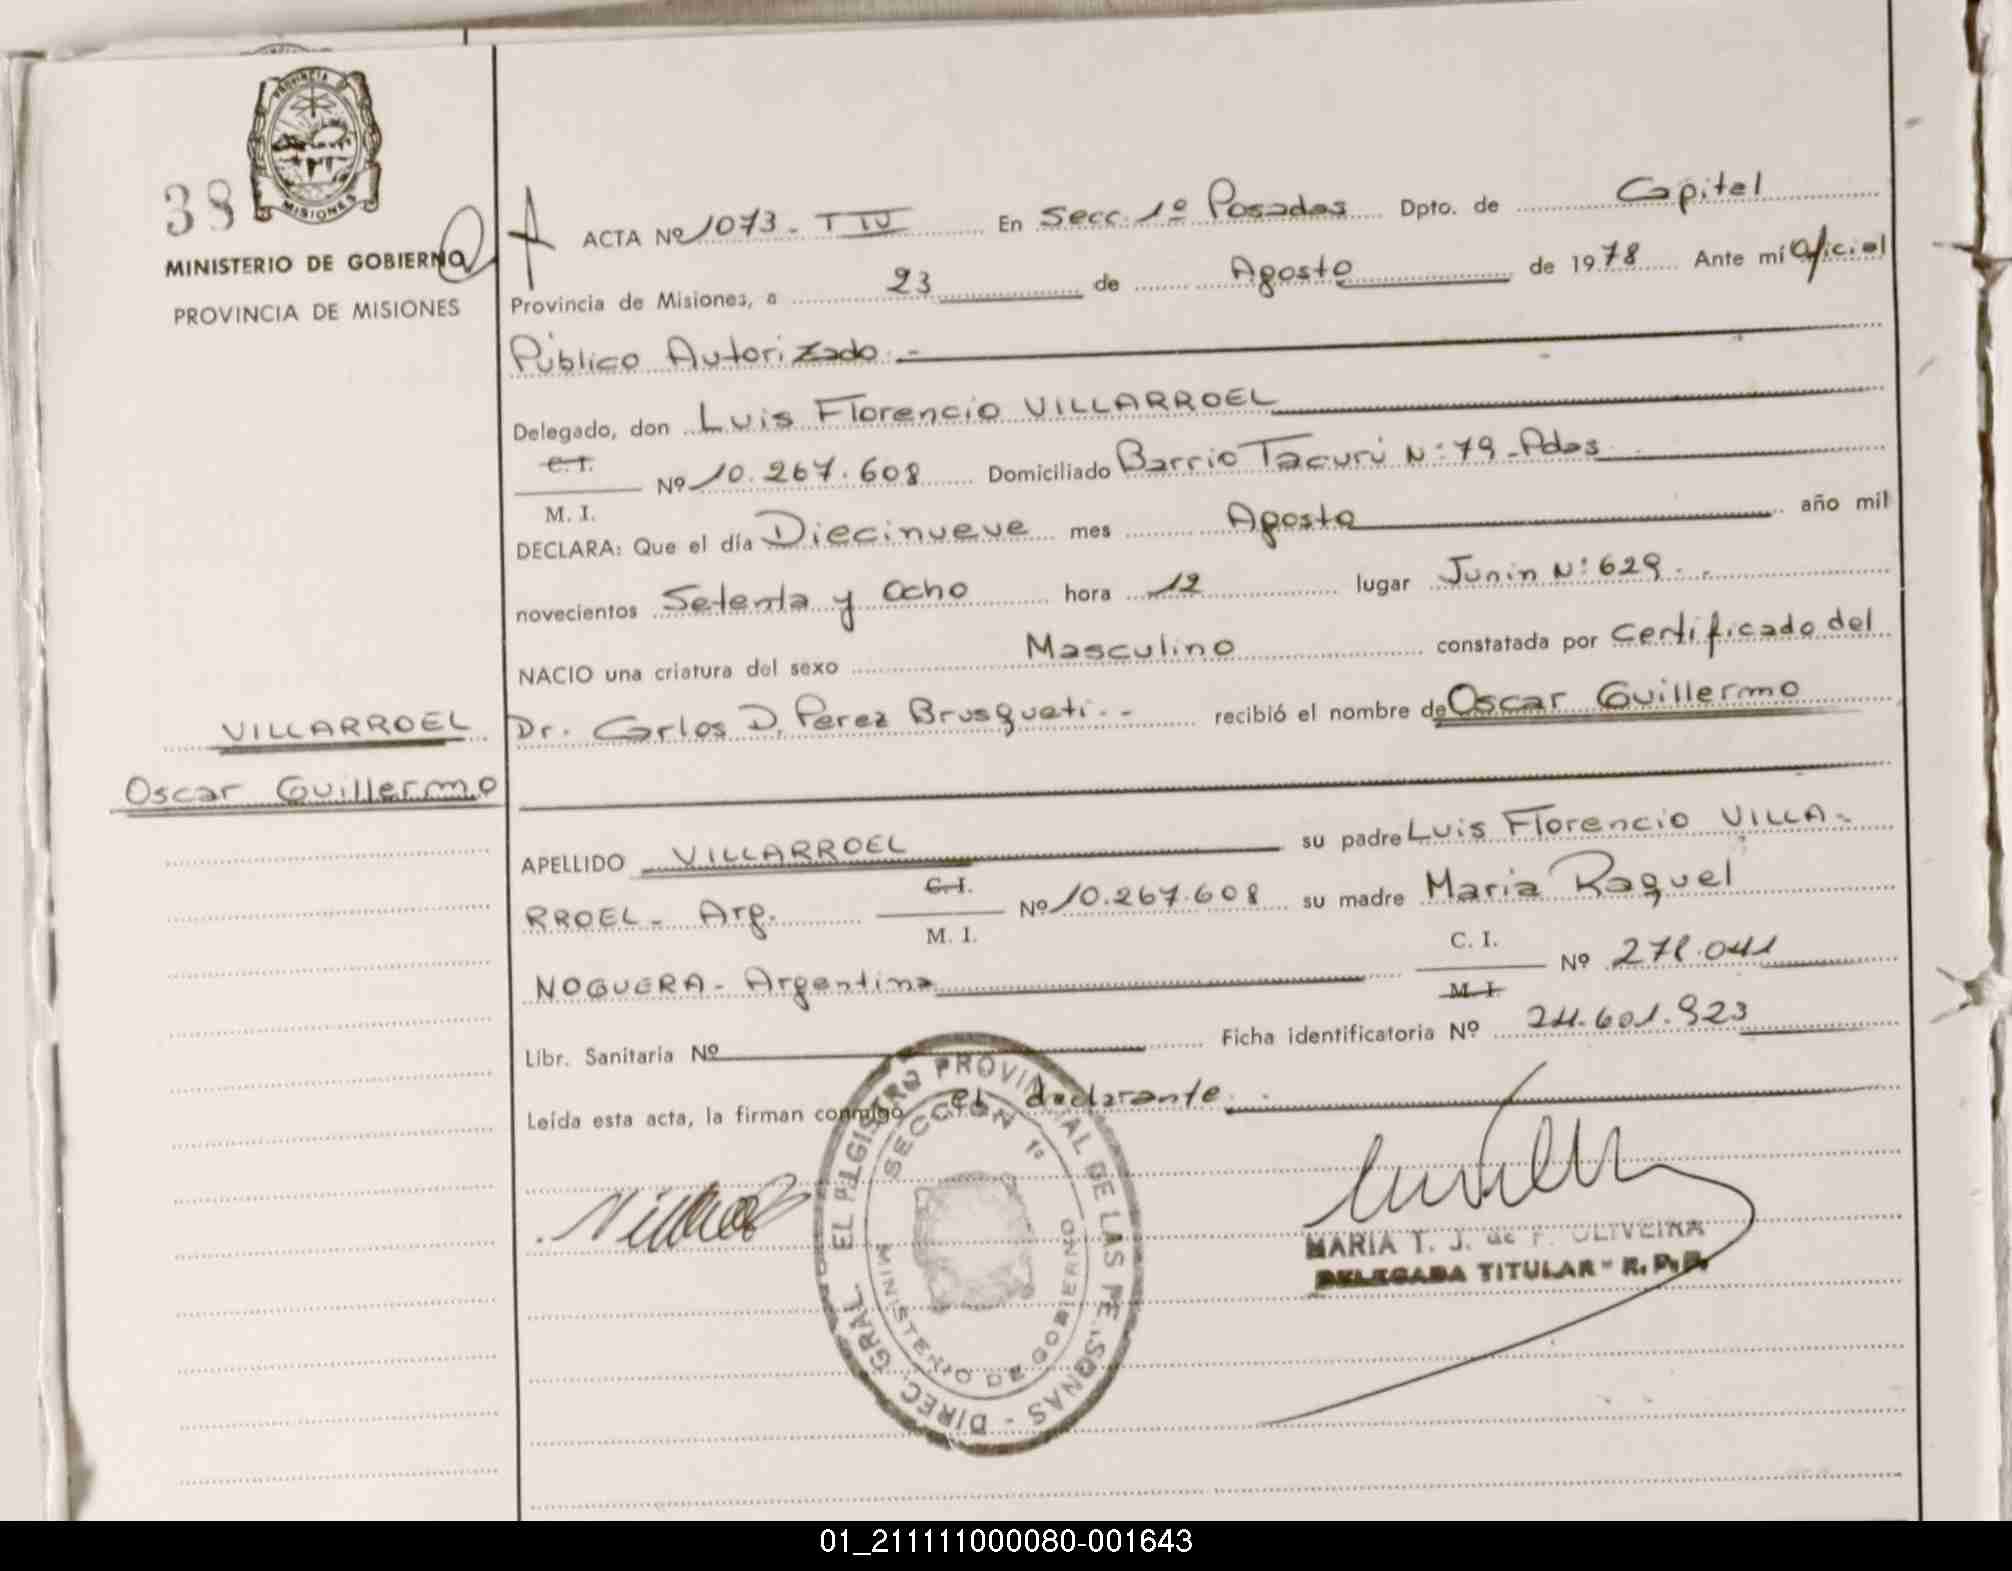 PROVINCIA DE
MISIONES
38
MINISTERIO DE GOBIERNO
PROVINCIA DE MISIONES
VILLARROEL
Oscar Guillermo
ACTA Nº 1073 - T IV En Secc. 1º Posadas Dpto. de Capital
Provincia de Misiones, a 23 de Agosto de 1978 Ante mí Oficial
Público Autorizado.-
Delegado, don Luis Florencio VILLARROEL
C. I.
M. I.
Nº 10.267.608 Domiciliado Barrio Tacurú N: 79 - Pdas
DECLARA: Que el día Diecinueve mes Agosto año mil
novecientos Setenta y Ocho hora 12 lugar Junín N: 629.-
NACIO una criatura del sexo Masculino constatada por Certificado del
Dr. Carlos D. Perez Brusqueti.- recibió el nombre de Oscar Guillermo
APELLIDO VILLARROEL su padre Luis Florencio VILLA-
RROEL - Arg. C. I. M. I. Nº 10.267.608 su madre Maria Raquel
NOGUERA - Argentina C. I. M. I. Nº 278.041
Libr. Sanitaria Nº Ficha identificatoria Nº 24.601.923
Leída esta acta, la firman conmigo el declarante.
DIREC. GRAL. EL REGISTRO PROVINCIAL DE LAS PERSONAS -
SECCION 1º
MINISTERIO DE GOBIERNO
MARIA T. J. de F. OLIVEIRA
DELEGADA TITULAR - R. P. P.
01_211111000080-001643